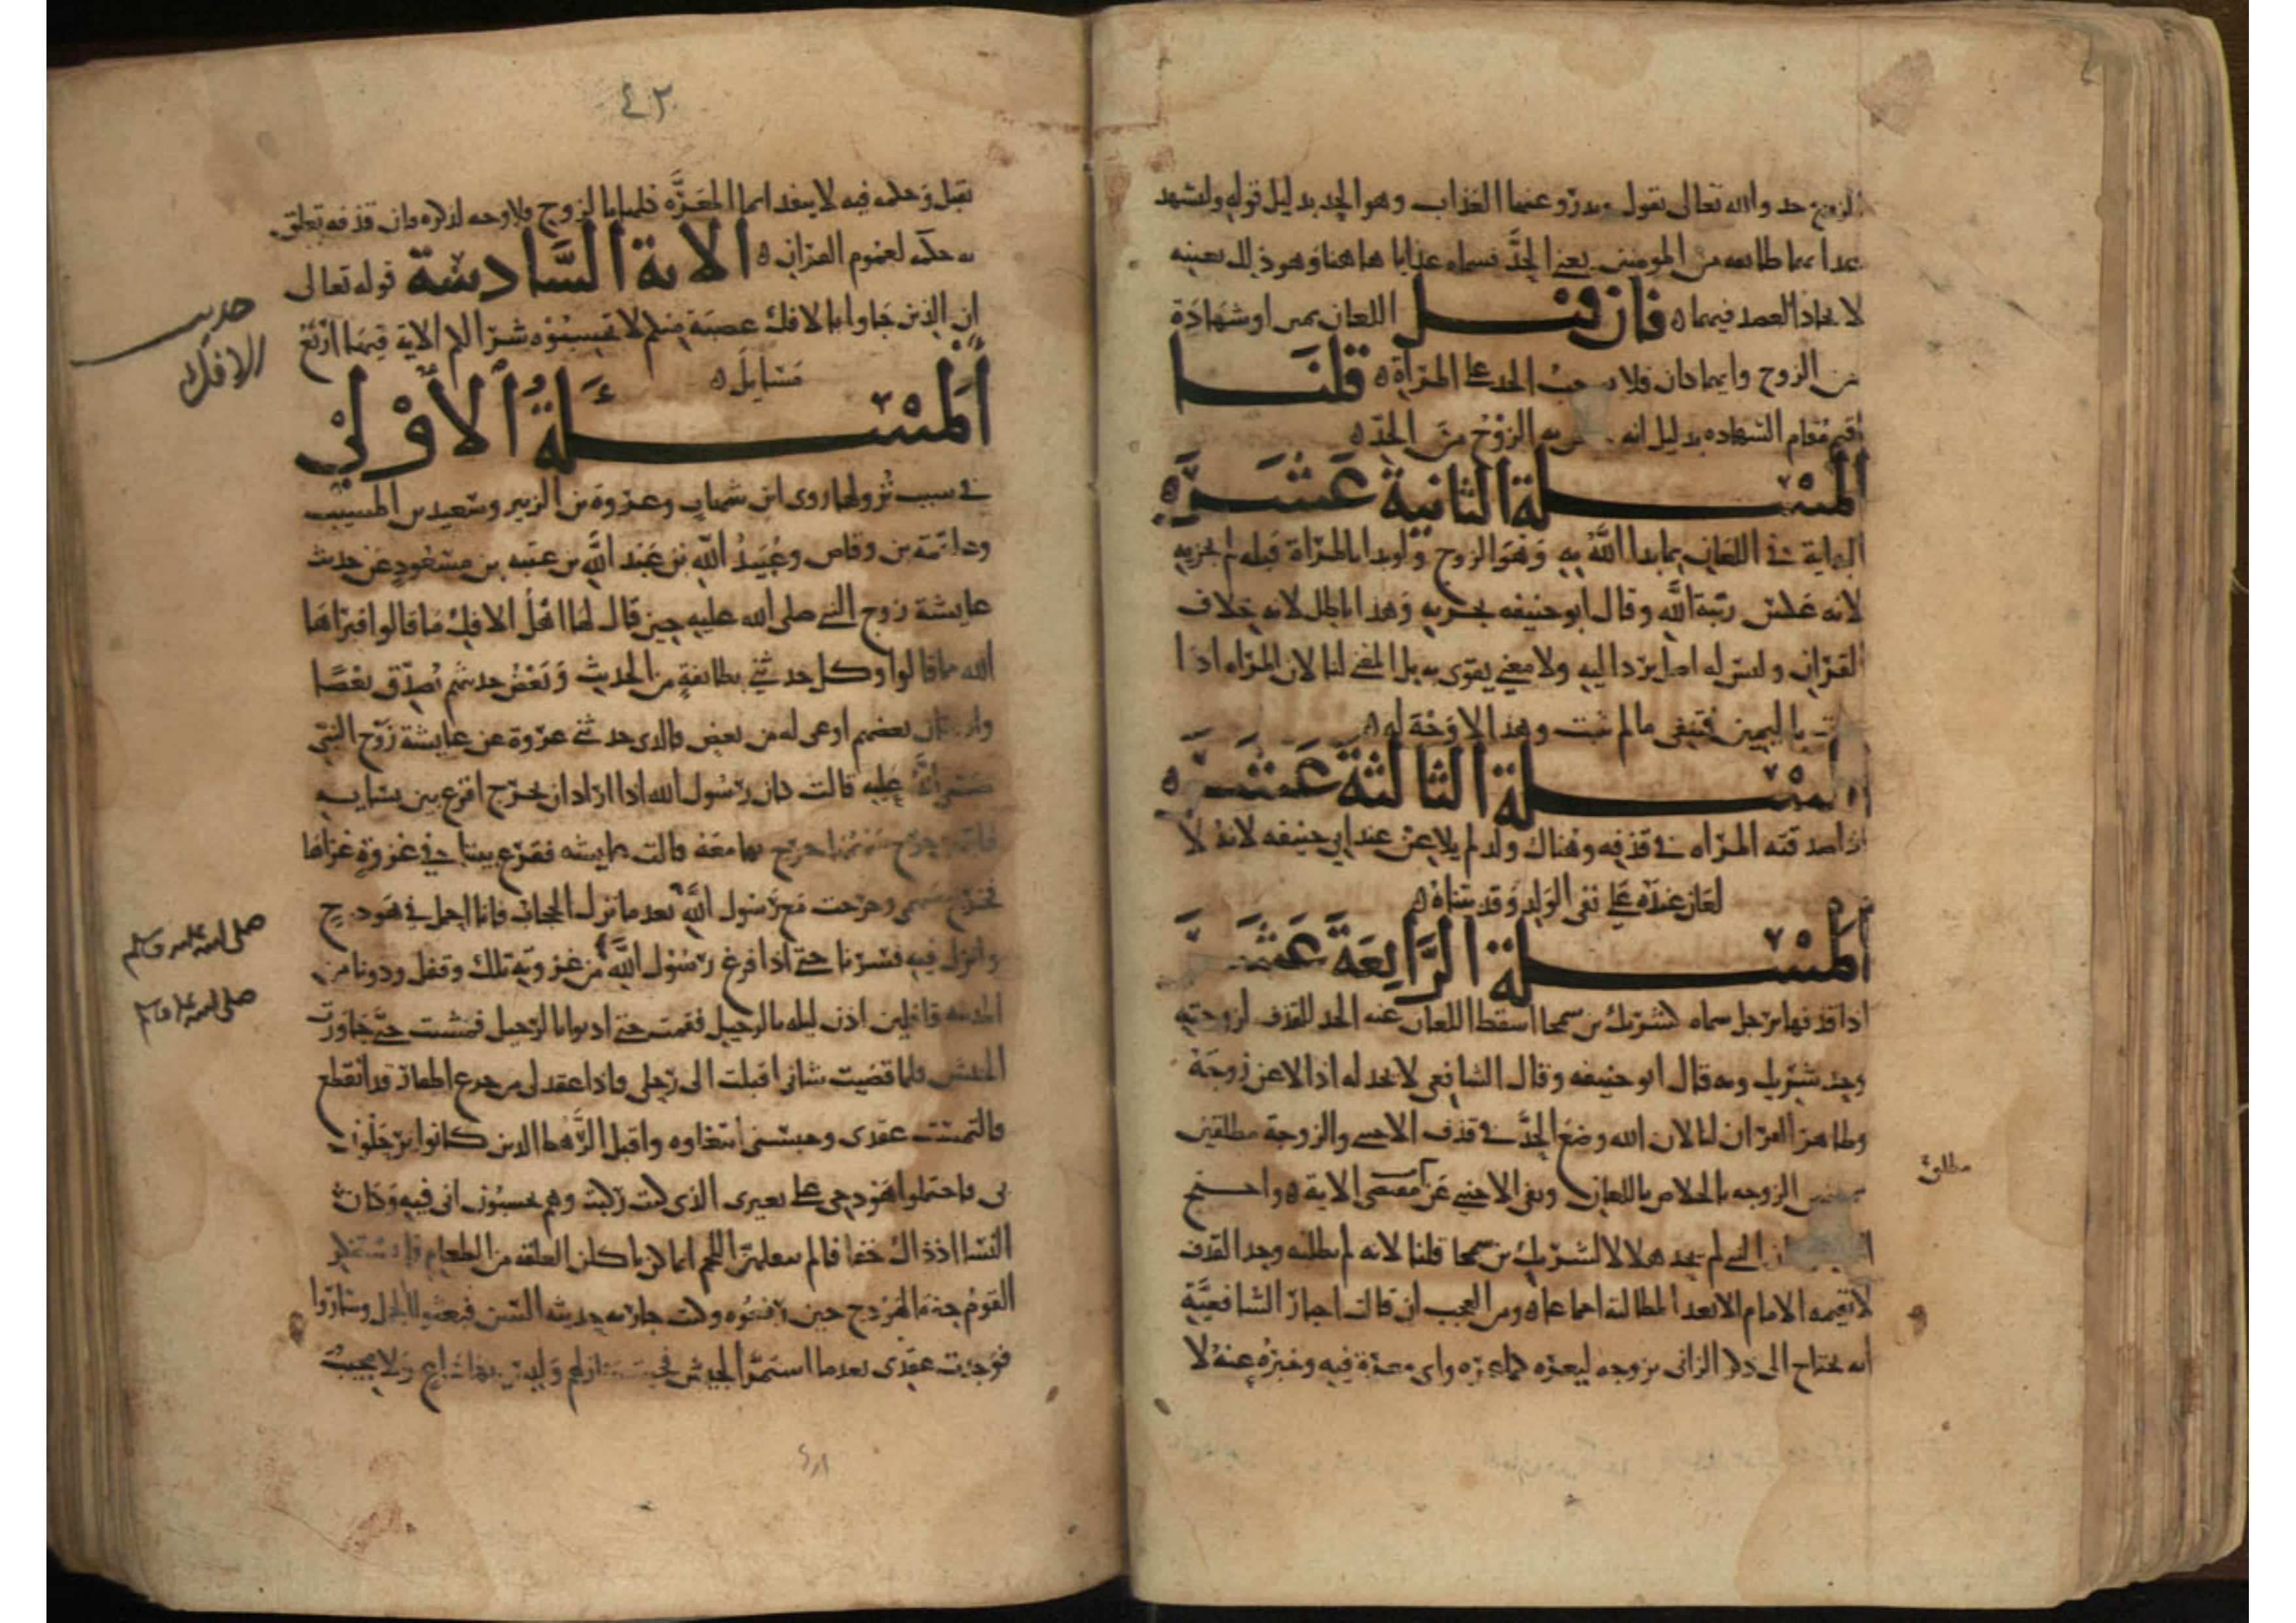 الزوج حد والله تعالى يقول ويدرؤ عنها العذاب وهو الحد بدليل قوله وليشهد
عذابهما طائفه من المومنين يعني الحد فسماه عذابا هاهنا وهو ذلك بعينه
لا يحاد العصد فيهما ه فان قيل اللعان يمين او شهادة
من الزوج وايهما كان فلا يوجب الحد على المرأة ه قلنا
اقيم مقام الشهاده بدليل انه يه الزوج من الحد ه
المسلة الثانية عشره
البداية في اللعان بما بدا الله به وهو الزوج ولو بدا بالمرأة قبله لم يجزيه
لانه عكس رتبة الله وقال ابو حنيفه يجزيه وهذا باطل لانه خلاف
القران وليس له اصل يرد اليه ولا معنى يقوى به بل المعنى لنا لان المراه اذا
باليمين فتنفى مالم يثبت وهذا لا وجه له ه
المسلة الثالثة عشره
اذا صدقته المراه في قذفه وهناك ولد لم يلاعن عند ابي حنيفه لانه لا
لعان عنده على نفي الولد وقد بيناه ه
المسلة الرابعة عشر
اذا قذفها برجل سماه كشريك بن سحما اسقط اللعان عنه الحد للقذف لزوجته
وحد شريك وبه قال ابو حنيفه وقال الشافعي لا يحد له اذا لاعن زوجة
وظاهر القران لنا لان الله وضع الحد في قذف الاجنبي والزوجة مطلقين
مطلق
الزوجه بالخلاص باللعان وبقي الاجنبي على مقتضى الاية ه واحتج
ان النبي لم يحد هلالا لشريك بن سحما قلنا لانه لم يطلبه وحد القذف
لا يقيمه الامام الا بعد المطالبة اجماعا ه ومن العجب ان قالت احبار الشافعية
انه يحتاج الى ذكر الزاني بزوجه ليعره كما عره واي معرة فيه وخبره عنه لا
٤٢
يقبل وحكمه فيه لا ينفد انما المعرة كلها بالزوج فلا وجه لذكره فان قذفه تعلق
به حكمه لعموم القران ه الاية السادسة قوله تعالى
ان الذين جاوا بالافك عصبة منكم لا تحسبوه شرا لكم الاية فيها اربع
حديث
الافك
مسايل ه
المسئلة الاولى
في سبب نزولها روى ابن شهاب وعروة بن الزبير وسعيد بن المسيب
وعلقمة بن وقاص وعبيد الله بن عبد الله بن عتبه بن مسعود عن حديث
عايشة زوج النبي صلى الله عليه حين قال لها اهل الافك ما قالوا فبراها
الله مما قالوا وكل حدثني بطائفة من الحديث وبعض حديثهم يصدق بعضا
وان كان بعضهم اوعى له من بعض فالذي حدثني عروة عن عايشة زوج النبي
صلى الله عليه قالت كان رسول الله اذا اراد ان يخرج اقرع بين نسايه
خرج بها معه قالت عايشه فقرع بيننا في غزوة غزاها
فخرج سهمي وخرجت مع رسول الله بعد ما نزل الحجاب فانا احمل في هودج
وانزل فيه فسرنا حتى اذا فرغ رسول الله من غزوته تلك وقفل ودونا من
صلى الله عليه وسلم
صلى الله عليه وسلم
المدينه قافلين اذن ليله بالرحيل فقمت حتى اذنوا بالرحيل فمشيت حتى جاوزت
الجيش فلما قضيت شاني اقبلت الى رحلي فاذا عقد لي من جزع اظفار قد انقطع
فالتمست عقدي وحبسني ابتغاوه واقبل الرهط الذين كانوا يرحلون
بي فاحتملوا هودجي على بعيري الذي كنت ركبت وهم يحسبون اني فيه وكان
النسا اذ ذاك خفافا لم يثقلهن اللحم انما كن ياكلن العلقه من الطعام فلم يستنكر
القوم خفة الهودج حين رفعوه وكنت جاريه حديثه السن فبعثوا الجمل وساروا
فوجدت عقدي بعدما استمر الجيش فجيت منازلهم وليس بها داع ولا مجيب